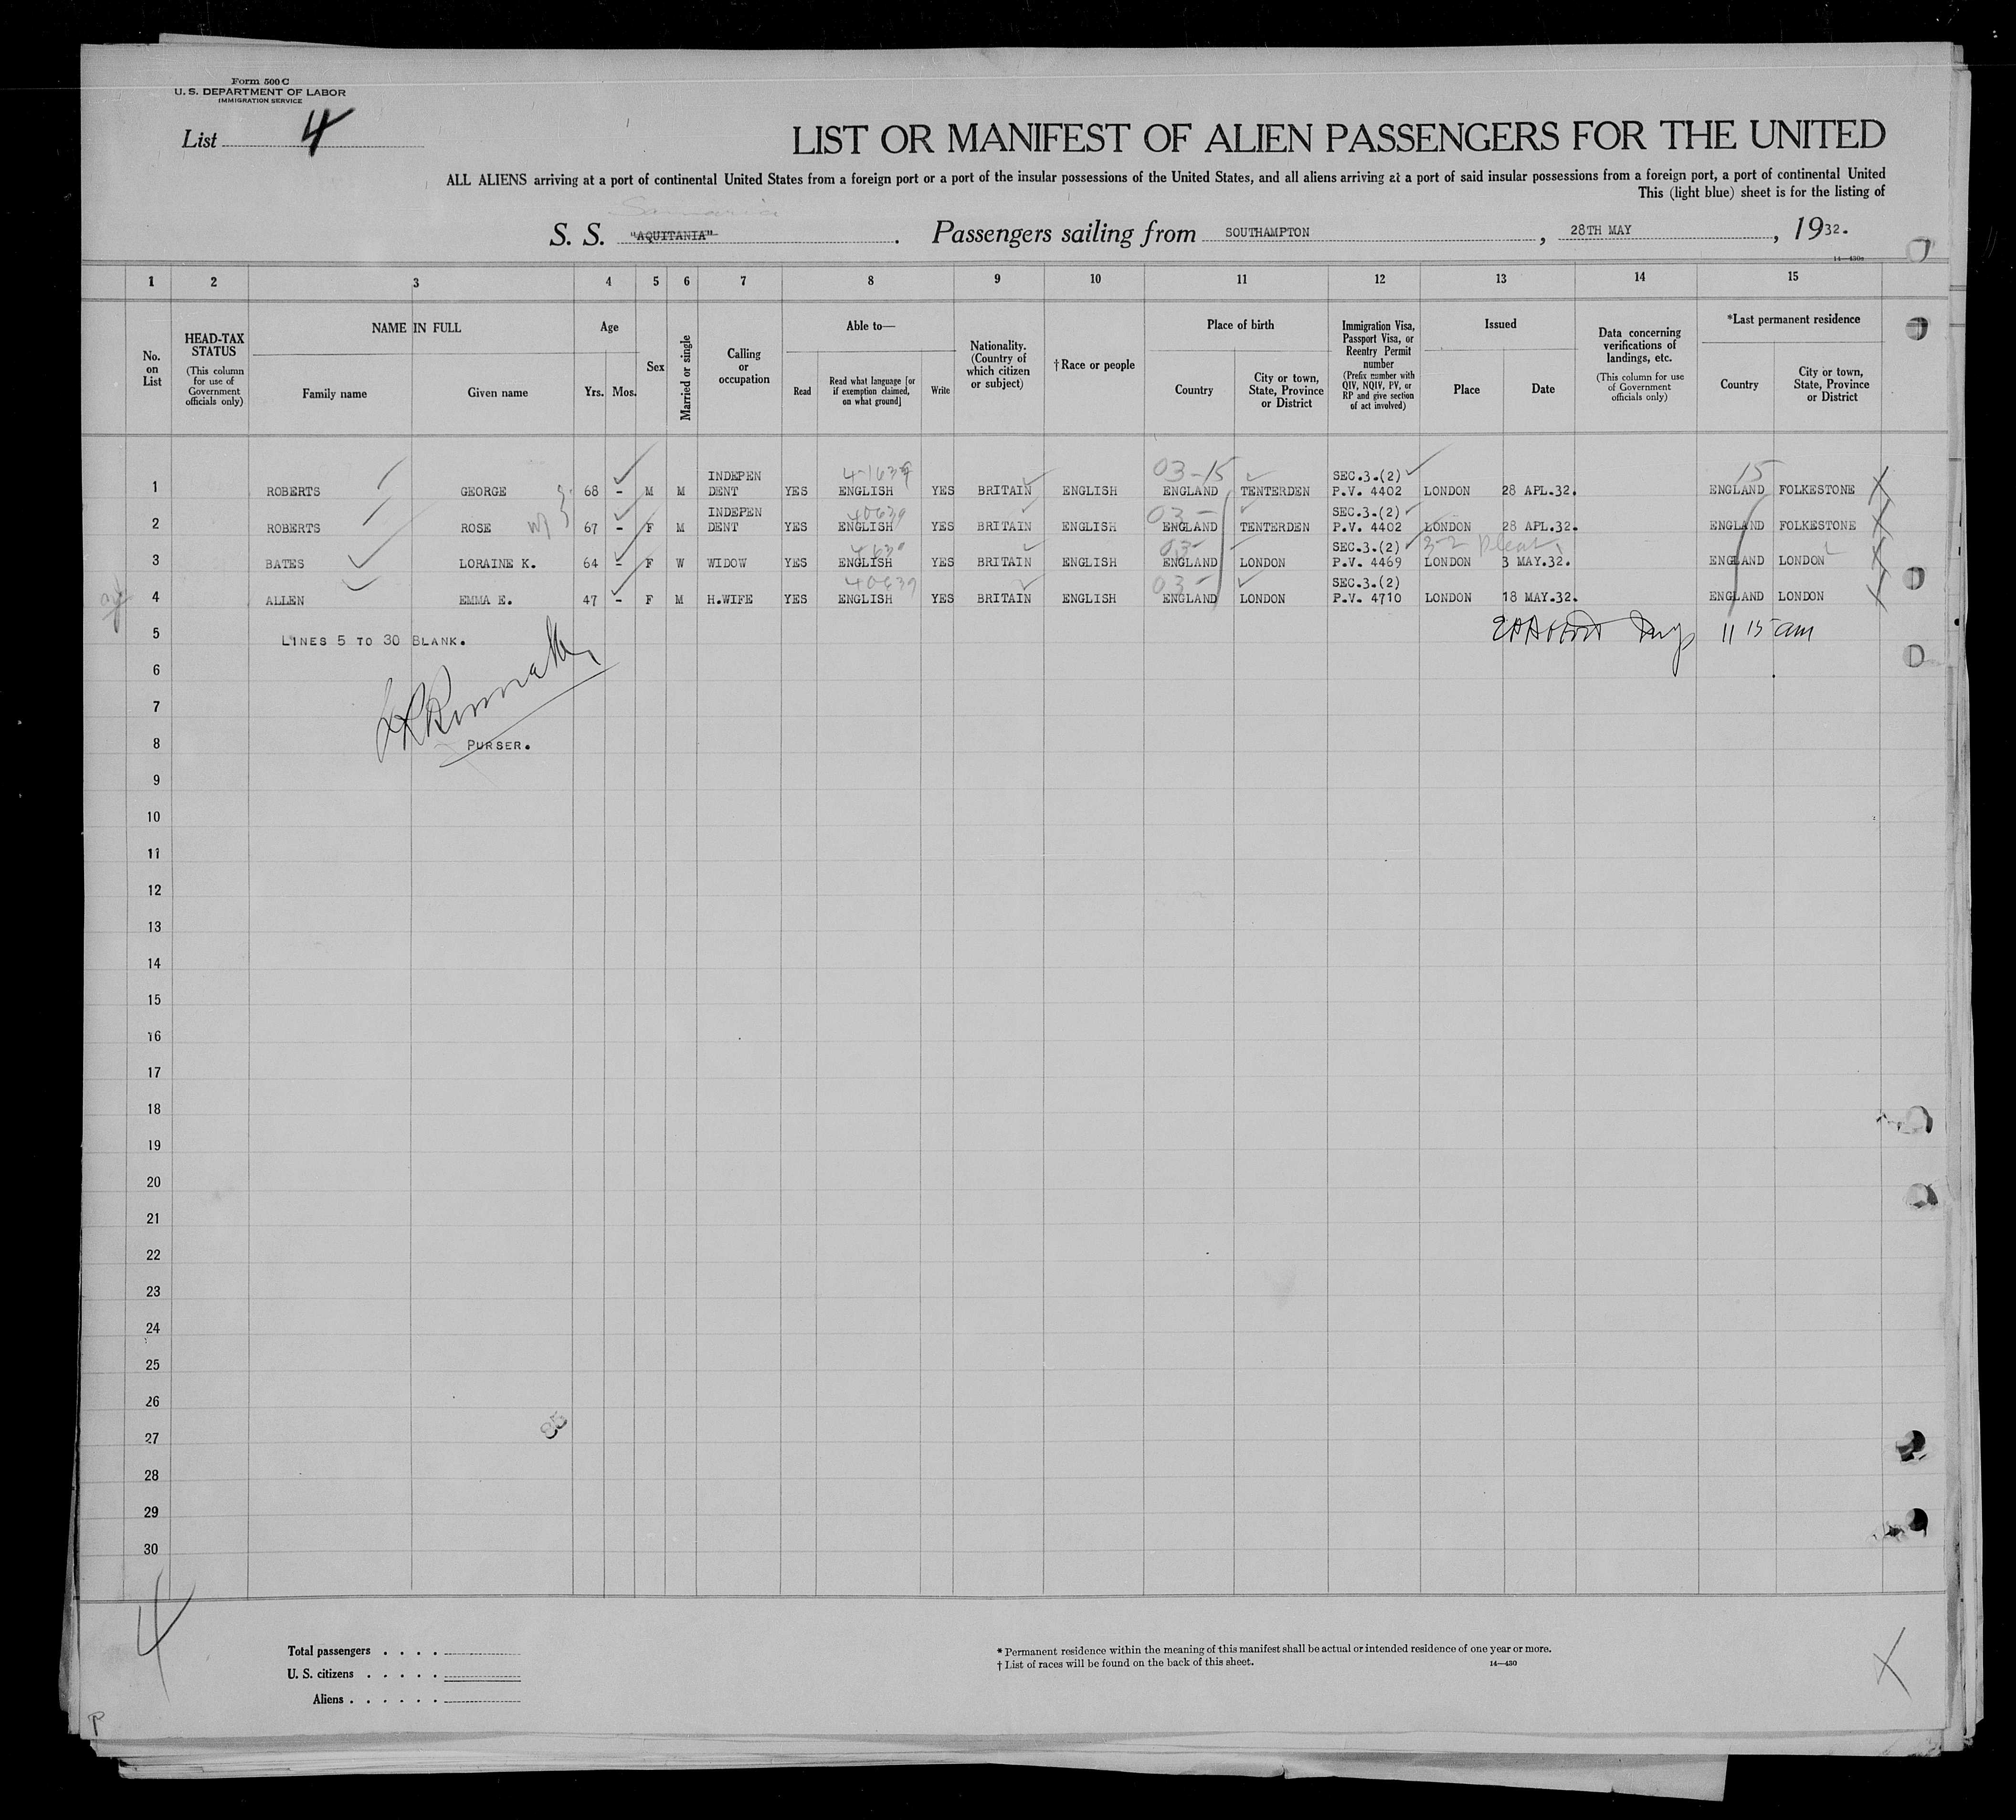 Form 500 C
U. S. DEPARTMENT OF LABOR
IMMIGRATION SERVICE
List 4
LIST OR MANIFEST OF ALIEN PASSENGERS FOR THE UNITED
ALL ALIENS arriving at a port of continental United States from a foreign port or a port of the insular possessions of the United States, and all aliens arriving at a port of said insular possessions from a foreign port, a port of continental United
This (light blue) sheet is for the listing of
Samaria
S. S. "AQUITANIA". Passengers sailing from SOUTHAMPTON, 28TH MAY, 1932.
14—430a
1 2 3 4 5 6 7 8 9 10 11 12 13 14 15
No. on List
HEAD-TAX STATUS (This column for use of Government officials only)
NAME IN FULL
Family name Given name
Age
Yrs. Mos.
Sex
Married or single
Calling or occupation
Able to—
Read
Read what language [or if exemption claimed, on what ground]
Write
Nationality. (Country of which citizen or subject)
† Race or people
Place of birth
Country
City or town, State, Province or District
Immigration Visa, Passport Visa, or Reentry Permit number (Prefix number with QIV, NQIV, PV, or RP and give section of act involved)
Issued
Place Date
Data concerning verifications of landings, etc. (This column for use of Government officials only)
*Last permanent residence
Country
City or town, State, Province or District
INDEPEN 03-15 SEC.3.(2) 15
1 ROBERTS GEORGE 68 - M M DENT YES ENGLISH YES BRITAIN ENGLISH ENGLAND TENTERDEN P.V. 4402 LONDON 28 APL.32. ENGLAND FOLKESTONE
INDEPEN 40639 03- SEC.3.(2)
2 ROBERTS ROSE 67 - F M DENT YES ENGLISH YES BRITAIN ENGLISH ENGLAND TENTERDEN P.V. 4402 LONDON 28 APL.32. ENGLAND FOLKESTONE
03- SEC.3.(2)
3 BATES LORAINE K. 64 - F W WIDOW YES ENGLISH YES BRITAIN ENGLISH ENGLAND LONDON P.V. 4469 LONDON 3 MAY.32. ENGLAND LONDON
40639 03- SEC.3.(2)
4 ALLEN EMMA E. 47 - F M H.WIFE YES ENGLISH YES BRITAIN ENGLISH ENGLAND LONDON P.V. 4710 LONDON 18 MAY.32. ENGLAND LONDON
5 LINES 5 TO 30 BLANK. 11 15 am
6
7
8 PURSER.
9
10
11
12
13
14
15
16
17
18
19
20
21
22
23
24
25
26
27
28
29
30
4
Total passengers . . . .
U. S. citizens . . . . .
Aliens . . . . . .
* Permanent residence within the meaning of this manifest shall be actual or intended residence of one year or more.
† List of races will be found on the back of this sheet. 14—430
P